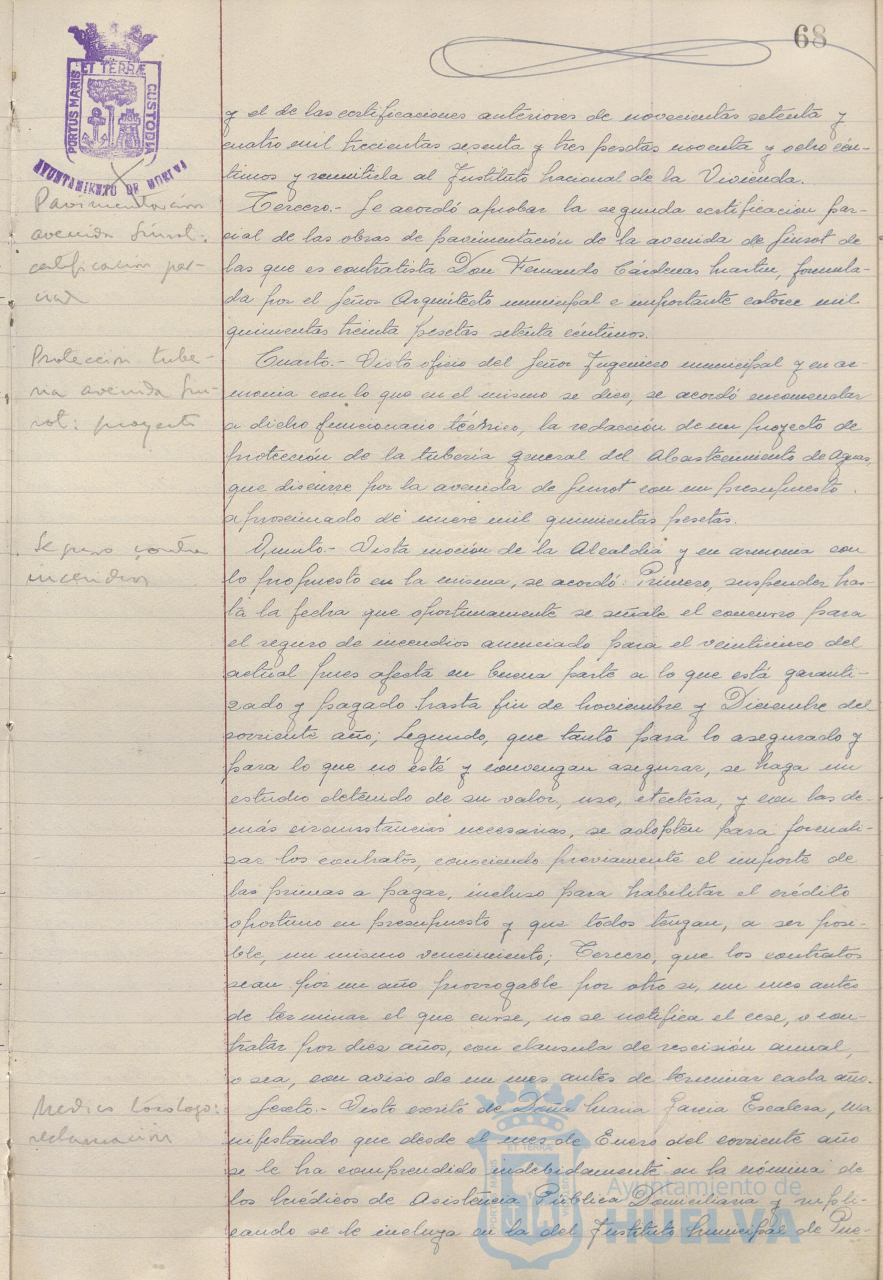 68
PORTUS MARIS ET TERRÆ CUSTODIA
AYUNTAMIENTO DE HUELVA
y el de las certificaciones anteriores de novecientas setenta y
cuatro mil trecientas sesenta y tres pesetas noventa y ocho cén-
timos y remitirla al Instituto Nacional de la Vivienda.
Pavimentación
avenida Guirot:
certificación par-
cial
Tercero.- Se acordó aprobar la segunda certificación par-
cial de las obras de pavimentación de la avenida de Guirot de
las que es contratista Don Fernando Cárdenas Martin, formula-
da por el Señor Arquitecto municipal e importante catorce mil
quinientas treinta pesetas setenta céntimos.
Protección tube-
ria avenida Gui-
rot: proyecto
Cuarto.- Visto oficio del Señor Ingeniero municipal y en ar-
monia con lo que en el mismo se dice, se acordó encomendar
a dicho funcionario técnico, la redacción de un proyecto de
protección de la tuberia general del Abastecimiento de Aguas,
que discurre por la avenida de Guirot con un presupuesto
aproximado de nueve mil quinientas pesetas.
Seguro contra
incendios
Quinto.- Vista moción de la Alcaldia y en armonia con
lo propuesto en la misma, se acordó: Primero, suspender has-
ta la fecha que oportunamente se señale el concurso para
el seguro de incendios anunciado para el veinticinco del
actual pues afecta en buena parte a lo que está garanti-
zado y pagado hasta fin de Noviembre y Diciembre del
corriente año; Segundo, que tanto para lo asegurado y
para lo que no esté y convengan asegurar, se haga un
estudio detenido de su valor, uso, etcétera, y con las de-
más circunstancias necesarias, se adopten para formali-
zar los contratos, conociendo previamente el importe de
las primas a pagar, incluso para habilitar el crédito
oportuno en presupuesto y que todos tengan, a ser posi-
ble, un mismo vencimiento; Tercero, que los contratos
sean por un año prorrogable por otro si, un mes antes
de terminar el que curse, no se notifica el cese, o con-
tratar por diez años, con clausula de rescisión annual,
o sea, con aviso de un mes antes de terminar cada año.
Medico Tocologo:
reclamación
Sexto.- Visto escrito de Doña Maria Garcia Escalera, ma
nifestando que desde el mes de Enero del corriente año
se le ha comprendido indebidamente en la nómina de
los Médicos de Asistencia Pública Domiciliaria y supli-
cando se le incluya en la del Instituto Municipal de Pue-
Ayuntamiento de
HUELVA